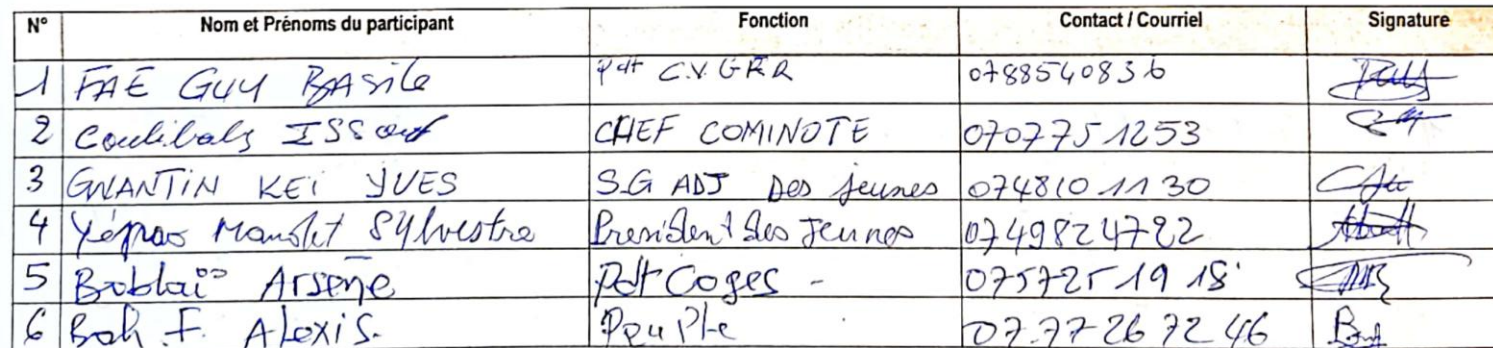 N° Nom et Prénoms du participant Fonction Contact / Courriel Signature
1 FAE GUY BASile Pdt C.V.GRR 0788540836
2 Coulibaly ISSouf CHEF COMINOTE 0707751253
3 GNANTIN KEi YVES S.G ADJ Des Jeunes 0748101130
4 Sylvestre President des Jeunes 0749824722
5 Arsene Pdt Coges - 0757251918
6 Bah F. Alexis. 07.77 26 72 46